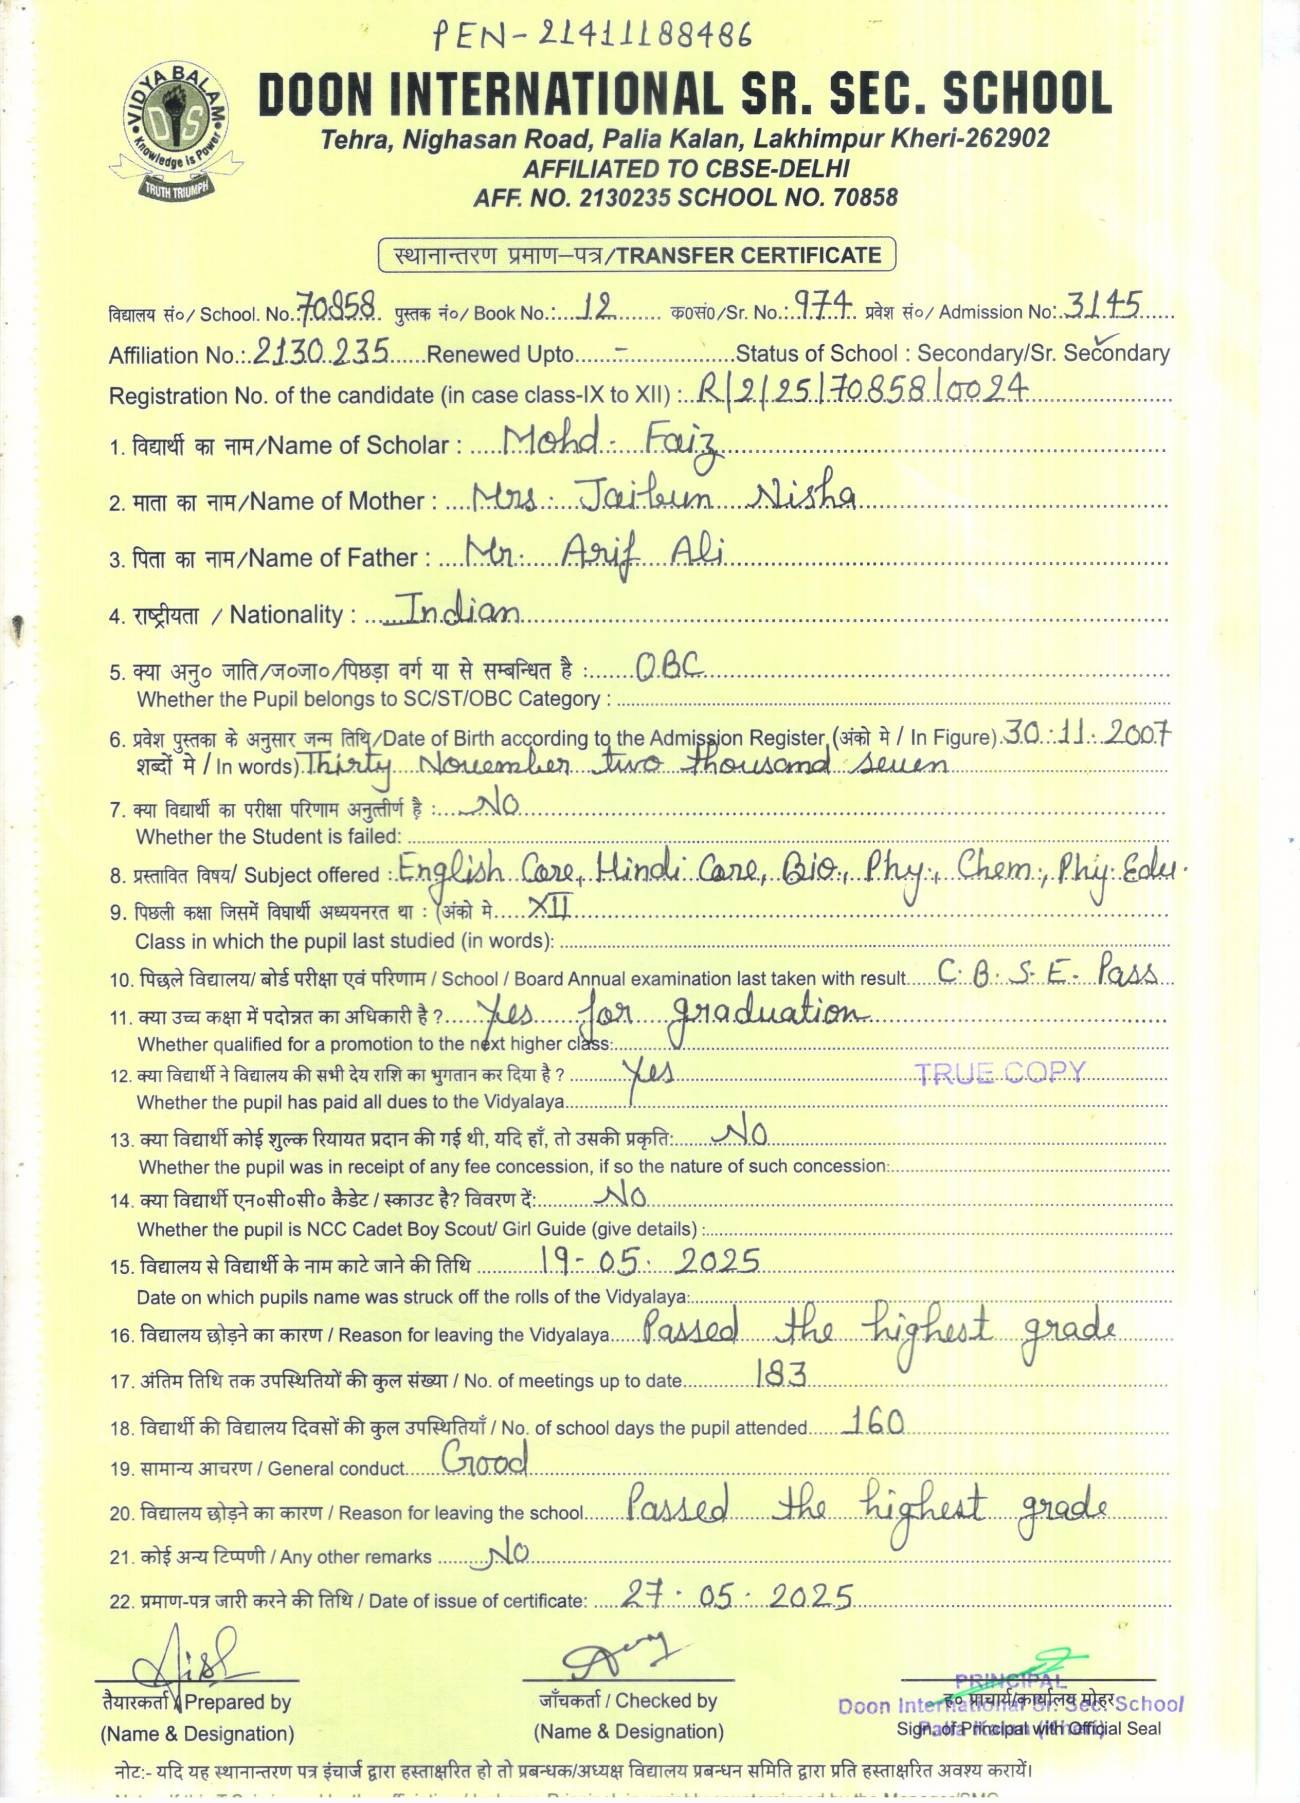 PEN-21411188486
VIDYA BALAM
DIS
Knowledge is Power
TRUTH TRIUMPH
DOON INTERNATIONAL SR. SEC. SCHOOL
Tehra, Nighasan Road, Palia Kalan, Lakhimpur Kheri-262902
AFFILIATED TO CBSE-DELHI
AFF. NO. 2130235 SCHOOL NO. 70858
स्थानान्तरण प्रमाण–पत्र/TRANSFER CERTIFICATE
विद्यालय सं०/ School. No.:70858 पुस्तक नं०/ Book No.:....12........ क0सं0/Sr. No.:.974. प्रवेश सं०/ Admission No:..3145......
Affiliation No.:.2130235......Renewed Upto.......-..................Status of School : Secondary/Sr. Secondary
Registration No. of the candidate (in case class-IX to XII) :..R/2/25/70858/0024
1. विद्यार्थी का नाम/Name of Scholar : .....Mohd. Faiz
2. माता का नाम/Name of Mother : ....Mrs. Jaibun Nisha
3. पिता का नाम/Name of Father : ....Mr. Arif Ali
4. राष्ट्रीयता / Nationality : ......Indian
5. क्या अनु० जाति/ज०जा०/पिछड़ा वर्ग या से सम्बन्धित है :.......OBC
Whether the Pupil belongs to SC/ST/OBC Category :
6. प्रवेश पुस्तका के अनुसार जन्म तिथि/Date of Birth according to the Admission Register (अंको मे / In Figure).30.11.2007
शब्दों मे / In words).Thirty November two thousand seven
7. क्या विद्यार्थी का परीक्षा परिणाम अनुत्तीर्ण है :....No
Whether the Student is failed:
8. प्रस्तावित विषय/ Subject offered :English Core, Hindi Core, Bio., Phy., Chem., Phy. Edu.
9. पिछली कक्षा जिसमें विघार्थी अध्ययनरत था : (अंको मे.....XII
Class in which the pupil last studied (in words):
10. पिछले विद्यालय/ बोर्ड परीक्षा एवं परिणाम / School / Board Annual examination last taken with result......C.B.S.E. Pass
11. क्या उच्च कक्षा में पदोन्नत का अधिकारी है ?.....Yes for graduation
Whether qualified for a promotion to the next higher class:
12. क्या विद्यार्थी ने विद्यालय की सभी देय राशि का भुगतान कर दिया है ? ..........Yes
TRUE COPY
Whether the pupil has paid all dues to the Vidyalaya
13. क्या विद्यार्थी कोई शुल्क रियायत प्रदान की गई थी, यदि हाँ, तो उसकी प्रकृति:......No
Whether the pupil was in receipt of any fee concession, if so the nature of such concession:
14. क्या विद्यार्थी एन०सी०सी० कैडेट / स्काउट है? विवरण दें:..........No
Whether the pupil is NCC Cadet Boy Scout/ Girl Guide (give details) :
15. विद्यालय से विद्यार्थी के नाम काटे जाने की तिथि ...........19-05.2025
Date on which pupils name was struck off the rolls of the Vidyalaya:
16. विद्यालय छोड़ने का कारण / Reason for leaving the Vidyalaya.....Passed the highest grade
17. अंतिम तिथि तक उपस्थितियों की कुल संख्या / No. of meetings up to date............183
18. विद्यार्थी की विद्यालय दिवसों की कुल उपस्थितियाँ / No. of school days the pupil attended......160
19. सामान्य आचरण / General conduct.....Good
20. विद्यालय छोड़ने का कारण / Reason for leaving the school.......Passed the highest grade
21. कोई अन्य टिप्पणी / Any other remarks .......No
22. प्रमाण-पत्र जारी करने की तिथि / Date of issue of certificate: ....27.05.2025
तैयारकर्ता / Prepared by
(Name & Designation)
जाँचकर्ता / Checked by
(Name & Designation)
PRINCIPAL
Doon International Sr. Sec. School
ह० प्राचार्य/कार्यालय मोहर
Sign. of Principal with Official Seal
नोट:- यदि यह स्थानान्तरण पत्र इंचार्ज द्वारा हस्ताक्षरित हो तो प्रबन्धक/अध्यक्ष विद्यालय प्रबन्धन समिति द्वारा प्रति हस्ताक्षरित अवश्य करायें।